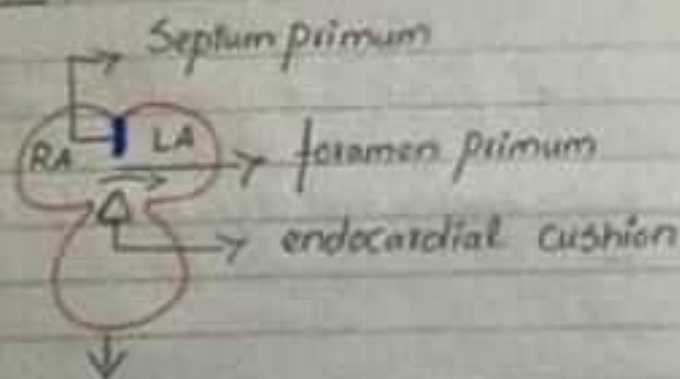 Septum primum
RA LA
foramen primum
endocardial cushion